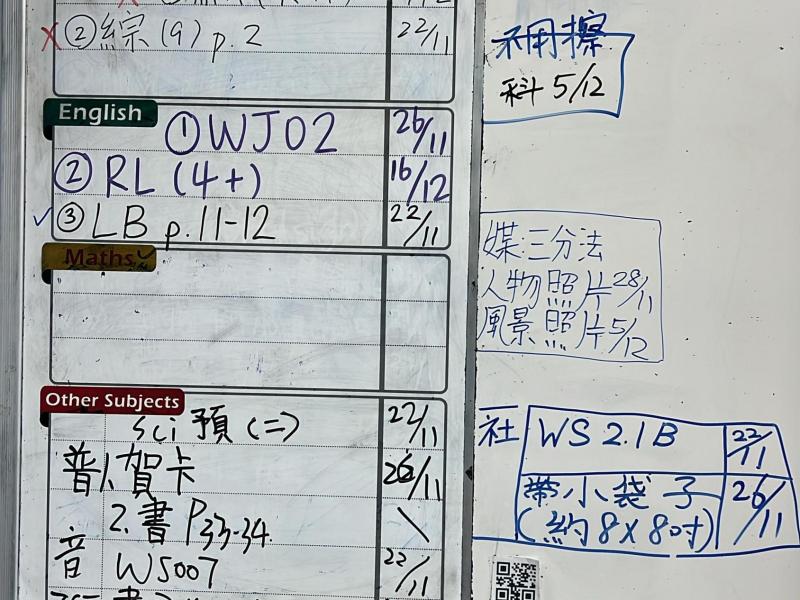 ② 綜(9) p.2 22/11
English
① WJ02 26/11
② RL (4+) 16/12
✓ ③ LB p.11-12 22/11
Maths ✓
Other Subjects
sci 預(二) 22/11
普 1. 賀卡 26/11
2. 書 P33-34 \
音 WS007 22/11
不用擦
科 5/12
媒:三分法
人物照片 28/11
風景照片 5/12
社 WS 2.1B 22/11
帶小袋子 26/11
(約8x8吋)